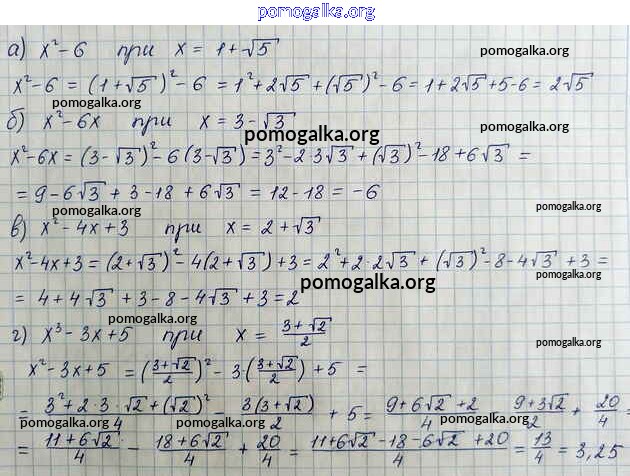 pomogalka.org
а) x² - 6 при x = 1 + √5
pomogalka.org
x² - 6 = (1 + √5)² - 6 = 1² + 2√5 + (√5)² - 6 = 1 + 2√5 + 5 - 6 = 2√5
pomogalka.org
б) x² - 6x при x = 3 - √3
pomogalka.org
pomogalka.org
x² - 6x = (3 - √3)² - 6(3 - √3) = 3² - 2·3√3 + (√3)² - 18 + 6√3 =
= 9 - 6√3 + 3 - 18 + 6√3 = 12 - 18 = -6
pomogalka.org
pomogalka.org
в) x² - 4x + 3 при x = 2 + √3
x² - 4x + 3 = (2 + √3)² - 4(2 + √3) + 3 = 2² + 2·2√3 + (√3)² - 8 - 4√3 + 3 =
pomogalka.org
pomogalka.org
= 4 + 4√3 + 3 - 8 - 4√3 + 3 = 2
pomogalka.org
г) x³ - 3x + 5 при x = (3 + √2)/2
pomogalka.org
x² - 3x + 5 = ((3 + √2)/2)² - 3·((3 + √2)/2) + 5 =
= (3² + 2·3·√2 + (√2)²)/4 - 3(3 + √2)/2 + 5 = (9 + 6√2 + 2)/4 - (9 + 3√2)/2 + 20/4 =
pomogalka.org
pomogalka.org
= (11 + 6√2)/4 - (18 + 6√2)/4 + 20/4 = (11 + 6√2 - 18 - 6√2 + 20)/4 = 13/4 = 3,25
pomogalka.org